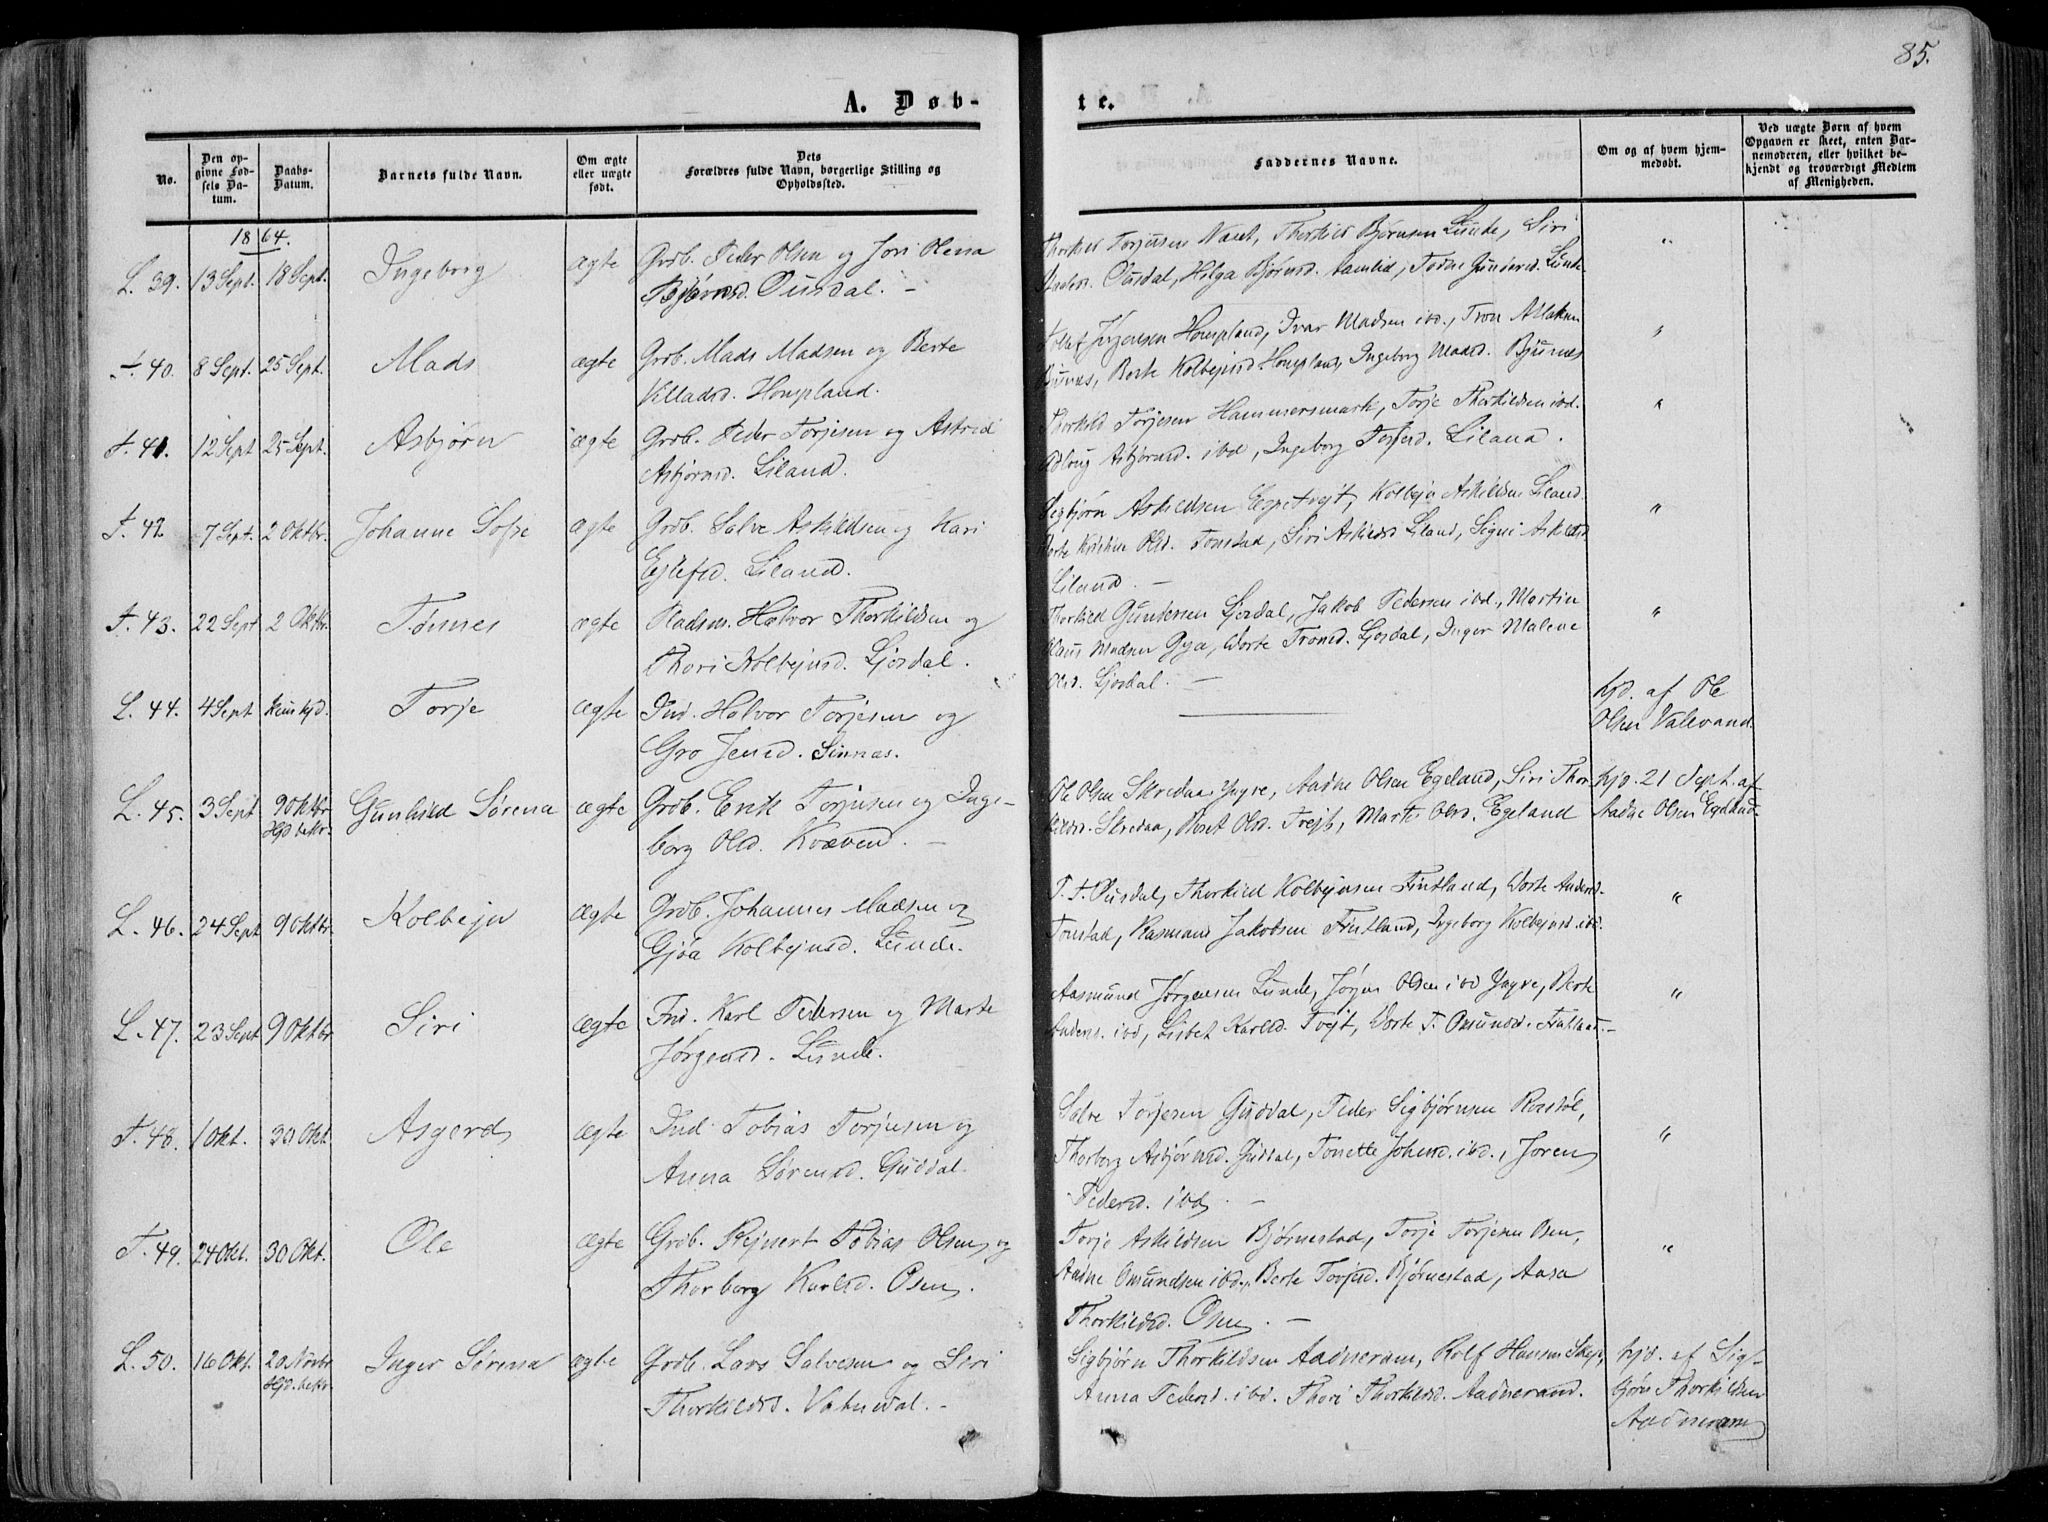 85.
A. Døb-
te.
No.
Den op-
givne Fød-
sels Da-
tum.
Daabs-
Datum.
Barnets fulde Navn.
Om ægte
eller uægte
født.
Dets
Forældres fulde Navn, borgerlige Stilling og
Opholdssted.
Faddernes Navne.
Om og af hvem hjem-
medøbt.
Ved uægte Børn af hvem
Opgaven er skeet, enten Bar-
nemoderen, eller hvilket be-
kjendt og troværdigt Medlem
af Menigheden.
1864.
L. 39. 13 Sept. 18 Sept. Ingeborg ægte Grdb. Peder Olsen og Jori Olena
Bjørnsd. Ousdal. –
Torjusen Thorkild Bjørnsen Lunde, Siri
Anders. Ousdal, Helga Bjørnsd. Aamlid, Tonne Gundersd. Lunde "
F. 40. 8 Sept. 25 Sept. Mads ægte Grdb. Mads Madsen og Berte
Villadsd. Hompland.
Tollef Jørgensen Hompland, Ivar Madsen ibd., Tron Aslaksen
Bjunes, Berte Kolbejnsd. Hompland, Ingeborg Madsd. Bjunes "
F. 41. 12 Sept 25 Sept. Asbjørn ægte Grdb. Peder Torjesen og Astrid
Asbjørnsd. Liland.
Thorkild Torjesen Hammersmark, Torje Thorkildsen ibd.
Asbjørnsd. ibd, Ingeborg Torjesd. Liland. "
F. 42. 7 Sept. 2 Oktbr. Johanne Sofie ægte Grdb. Salve Askildsen og Kari
Ejlefsd. Liland.
Sigbjørn Askildsen Espetvejt, Kolbejn Askildsen Liland
Berte Kristine Olsd. Tonstad, Siri Askildsd Liland, Signe Askildsd
Liland. – "
F. 43. 22 Sept 2 Oktbr. Tønnes ægte Pladsm. Halvor Thorkildsen og
Thori Kolbejnsd. Ljosdal.
Thorkild Gundersen Ljosdal, Jakob Pedersen ibd., Martin
Claus Madsen Gya, Dorte Tronsd. Ljosdal, Inger Malene
Olsd. Ljosdal. – "
L. 44. 4 Sept Torje ægte Ind. Halvor Torjesen og
Gro Jensd. Sinnæs.
hjd. af Ole
Olsen Valevand.
L. 45. 3 Sept 9 Oktbr Hjd. bekr. Gunhild Sørena ægte Grdb. Erik Torjusen og Inge-
borg Olsd. Kvæven. –
Ole Olsen Skredaa Yngre, Aadne Olsen Egeland, Siri Thor-
kildsd. Skredaa, Beret Olsd. Tvejt, Marte Olsd. Egeland
hjd. 21 Sept. af
Aadne Olsen Egeland.
L. 46. 24 Sept 9 Oktbr Kolbejn ægte Grdb. Johannes Madsen og
Gjøa Kolbejnsd. Lunde.
P. F. Ousdal, Thorkild Kolbejnsen Fintland, Dorte Andersd.
Tonstad, Rasmus Jakobsen Fintland, Ingeborg Kolbejnsd. ibd. "
L. 47. 23 Sept 9 Oktbr Siri ægte Ind. Karl Pedersen og Marte
Jørgensd. Lunde.
Aasmund Jørgensen Lunde, Jørgen Olsen ibd Yngre, Berte
Andersd. ibd, Lisbet Karlsd. Tvejt, Dorte T. Omundsd. Fintland. – "
F. 48. 1 Okt. 30 Okt. Asgerd ægte Ind. Tobias Torjusen og
Anna Sørensd. Guddal.
Salve Torjesen Guddal, Peder Sigbjørnsen Rostøl,
Thorborg Asbjørnsd. Guddal, Tonette Johnsd. ibd., Joren
Pedersd. ibd. – "
F. 49. 24 Okt. 30 Okt. Ole ægte Grdb. Rejnert Tobias Olsen og
Thorborg Karlsd. Osen.
Torje Askildsen Bjørnestad, Torje Torjesen Osen,
Aadne Omundsen ibd., Berte Torjesd. Bjørnestad, Aasa
Thorkildsd. Osen. – "
L. 50. 16 Okt. 20 Novbr Hjd. bekr. Inger Sørena ægte Grdb. Lars Salvesen og Siri
Thorkildsd. Vatnedal. –
Sigbjørn Thorkildsen Aadneram, Rolf Hansen
Anna Pedersd. ibd. Thori Thorkildsd. Aadneram.
hjd. af Sig-
bjørn Thorkildsen
Aadneram